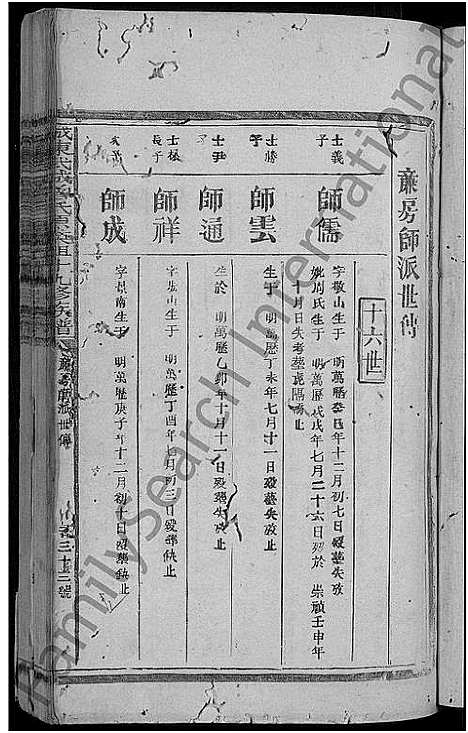 廉房師派世傳
十六世
士義
子
師儒
字敬山生于 明萬歷癸巳年十二月初七日歿墓失攷
妣周氏生于 明萬歷戊戌年七月二十六日歿於 崇禎壬申年
十月日失考墓虎隔 止
士勝
子
師雲
生于 明萬歷丁未年七月十一日歿墓失攷止
士尹
子
師通
生於 明萬歷乙卯年十月十一日歿墓失攷止
士
長子
師祥
字 山生于 明萬歷丁酉年七月初三日歿葬缺止
次子
師成
字景南生于 明萬歷庚子年十二月初十日歿葬缺止
九修族譜 廉房師派世傳 三十三號
FamilySearch International